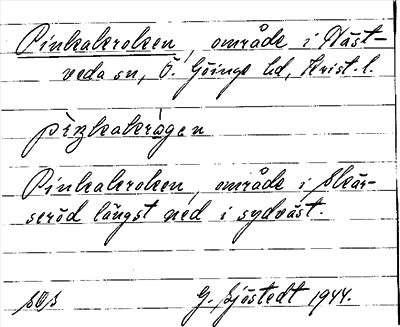 Pinkakroken, område i Näst-
veda sn, Ö. Göinge hd, Krist. l.
pìŋkakrògen
Pinkakroken, område i Skär-
seröd längst ned i sydväst.
G. Sjöstedt 1944.